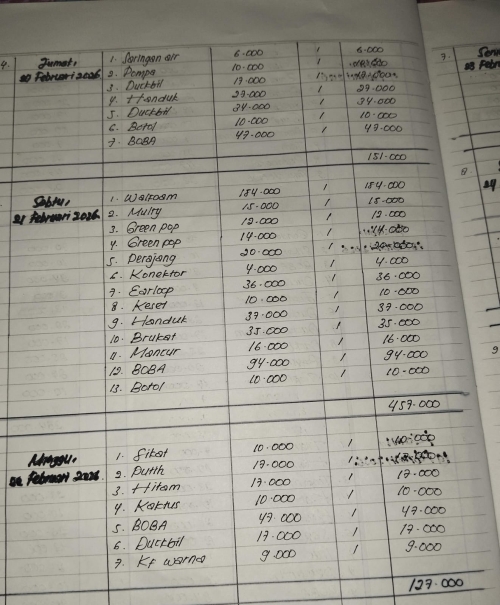 4. Jumat, 1. Saringan air 6.000 1 6.000
20 Februari 2026 2. Pompa 10.000 1
3. Duckbil 17.000 1
4. Handuk 27.000 1 27.000
5. Duckbil 34.000 1 34.000
6. Botol 10.000 1 10.000
7. BOBA 47.000 1 47.000
151.000
Sabtu, 1. Walfoam 184.000 1 184.000
21 Februari 2026 2. Multy 15.000 1 15.000
3. Green pop 12.000 1 12.000
4. Green pop 14.000 1
5. Perajang 20.000 1
6. Konektor 4.000 1 4.000
7. Earloop 36.000 1 36.000
8. Keset 10.000 1 10.000
9. Handuk 37.000 1 37.000
10. Brukat 35.000 1 35.000
11. Mancur 16.000 1 16.000
12. BOBA 94.000 1 94.000
13. Botol 10.000 1 10.000
457.000
Minggu, 1. Sikat 10.000 1
22 Februari 2026 2. Putih 17.000 1
3. Hitam 17.000 1 17.000
4. Kaktus 10.000 1 10.000
5. BOBA 47.000 1 47.000
6. Duckbil 17.000 1 17.000
7. Kf warna 9.000 1 9.000
127.000
7.
8.
9